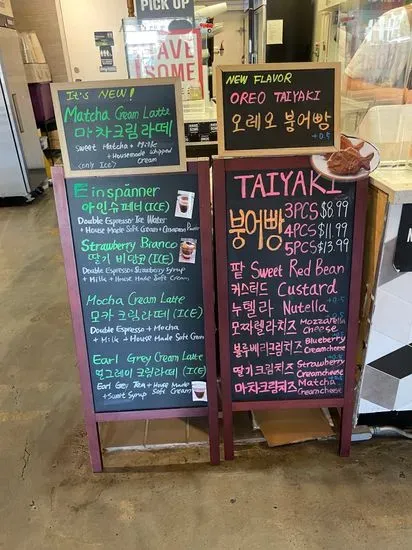 PICK UP
SAVE
SOME
It's NEW!
Matcha Cream Latte
마차크림라떼
Sweet Matcha + Milk
+ Housemade Whipped
(only ICE) Cream
NEW FLAVOR
OREO TAIYAKI
오레오 붕어빵
+0.5
Einspänner
아인슈페너 (ICE)
Double Espresso Ice Water
+ House Made Soft Cream + Cinnamon Powder
Strawberry Bianco
딸기 비앙코 (ICE)
Double Espresso Strawberry Syrup
+ Milk + House Made Soft Cream
Mocha Cream Latte
모카 크림라떼 (ICE)
Double Espresso + Mocha
+ Milk + House Made Soft Cream
Earl Grey Cream Latte
얼그레이 크림라떼 (ICE)
Earl Grey Tea + House Made
+ Sweet Syrup Soft Cream
TAIYAKI
붕어빵
3PCS $8.99
4PCS $11.99
5PCS $13.99
팥 Sweet Red Bean
커스터드 Custard
누텔라 Nutella +0.5
모짜렐라치즈 Mozzarella Cheese
블루베리크림치즈 Blueberry Creamcheese
딸기크림치즈 Strawberry Creamcheese
마차크림치즈 Matcha Creamcheese